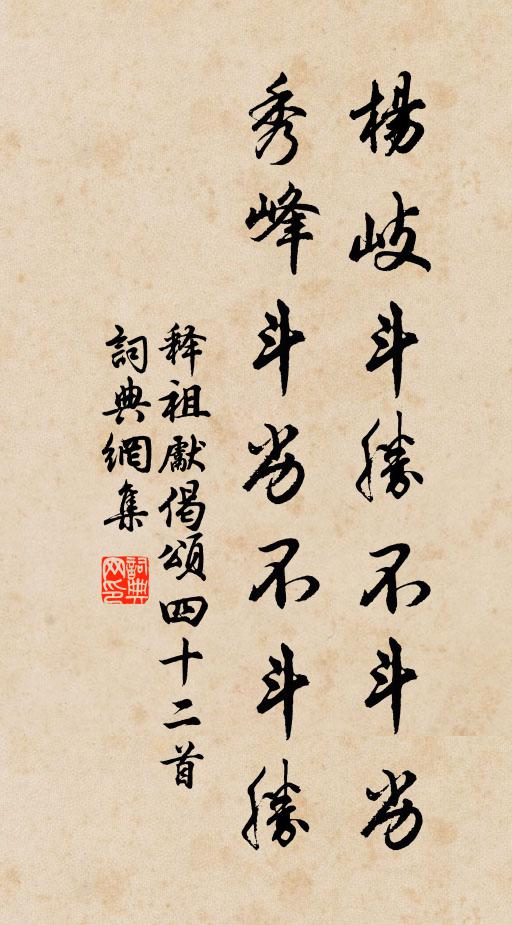 楊岐斗勝不斗劣
秀峰斗劣不斗勝
释祖獻偈頌四十二首
詞典網集
詞典网印